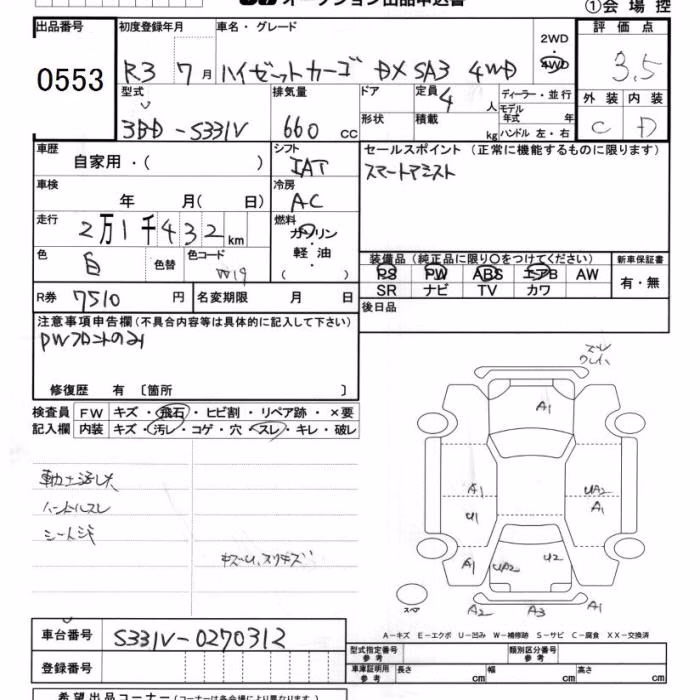 オークション出品申込書
①会場控
出品番号
0553
初度登録年月
R3 7月
車名・グレード
ハイゼットカーゴ DX SA3 4WD
2WD
4WD
評価点
3.5
外装 内装
C D
型式
3BD-S331V
排気量
660 cc
ドア
形状
定員 4人
積載 kg
ディーラー・並行
モデル年式 年
ハンドル 左・右
車歴
自家用・( )
シフト
IAT
セールスポイント (正常に機能するものに限ります)
スマートアシスト
車検
年 月( 日)
冷房
AC
走行
2万1千432km
燃料
ガソリン
軽油
( )
色
白
色替
色コード
W19
装備品 (純正品に限り○をつけてください)
PS PW ABS エアB AW
SR ナビ TV カワ
新車保証書
有・無
R券 7510円
名変期限 月 日
後日品
注意事項申告欄 (不具合内容等は具体的に記入して下さい)
PWフロントのみ
修復歴 有〔箇所 〕
検査員記入欄
FW キズ・飛石・ヒビ割・リペア跡・×要
内装 キズ・汚レ・コゲ・穴・スレ・キレ・破レ
ハンドルスレ
A1
A1
U1
UA2
A1
A1
UA2
U2
A1
スペア
A2
A3
A1
A-キズ E-エクボ U-凹み W-補修跡 S-サビ C-腐食 XX-交換済
車台番号
S331V-0270312
登録番号
型式指定番号 参考
類別区分番号 参考
車庫証明用 参考
長さ cm
幅 cm
高さ cm
希望出品コーナー (コーナーは各会場により異なります。)